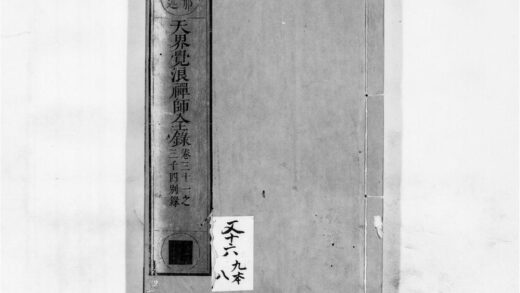 天界覺浪禪師全錄
卷三十一之
三十四別錄
又十六
九本
八